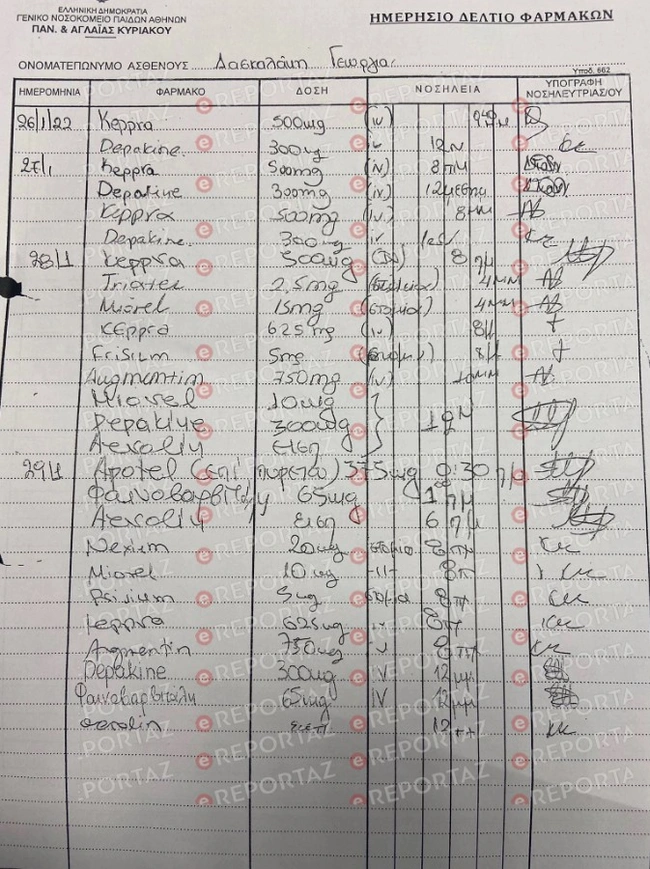 ΕΛΛΗΝΙΚΗ ΔΗΜΟΚΡΑΤΙΑ
ΓΕΝΙΚΟ ΝΟΣΟΚΟΜΕΙΟ ΠΑΙΔΩΝ ΑΘΗΝΩΝ
ΠΑΝ. & ΑΓΛΑΪΑΣ ΚΥΡΙΑΚΟΥ
ΗΜΕΡΗΣΙΟ ΔΕΛΤΙΟ ΦΑΡΜΑΚΩΝ
ΟΝΟΜΑΤΕΠΩΝΥΜΟ ΑΣΘΕΝΟΥΣ Δασκαλάκη Γεωργία
Υποδ. 662
ΗΜΕΡΟΜΗΝΙΑ ΦΑΡΜΑΚΟ ΔΟΣΗ ΝΟΣΗΛΕΙΑ ΥΠΟΓΡΑΦΗ ΝΟΣΗΛΕΥΤΡΙΑΣ/ΟΥ
26/1/22 Keppra 500mg (iv)
Depakine 300mg iv 12
27/1 Keppra 500mg (iv) 8πμ
Depakine 300mg (iv) 12
Keppra 500mg (iv) 8
Depakine 300mg iv
28/1 Keppra 500mg (IV) 8 πμ
Triatec 2,5mg 4μμ
Miorel 15mg 4μμ
Keppra 625mg (iv) 8
Frisium 5mg 8
Augmentin 750mg (iv) 10μμ
Miorel 10mg
Depakine 300mg
Aerolin εισπ
29/1 Apotel (επί πυρετού) 375mg 0:30 πμ
Φαινοβαρβιτάλη 65mg 1 πμ
Aerolin εισπ 6 πμ
Nexium 20mg στόμα 8πμ
Miorel 10mg -11- 8π
Frisium 5mg στόμα 8π
Keppra 625mg iv 8π
Augmentin 750mg iv 8π
Depakine 300mg IV 12μμ
Φαινοβαρβιτάλη 65mg IV 12μμ
aerolin εισπ 12
eREPORTAZ